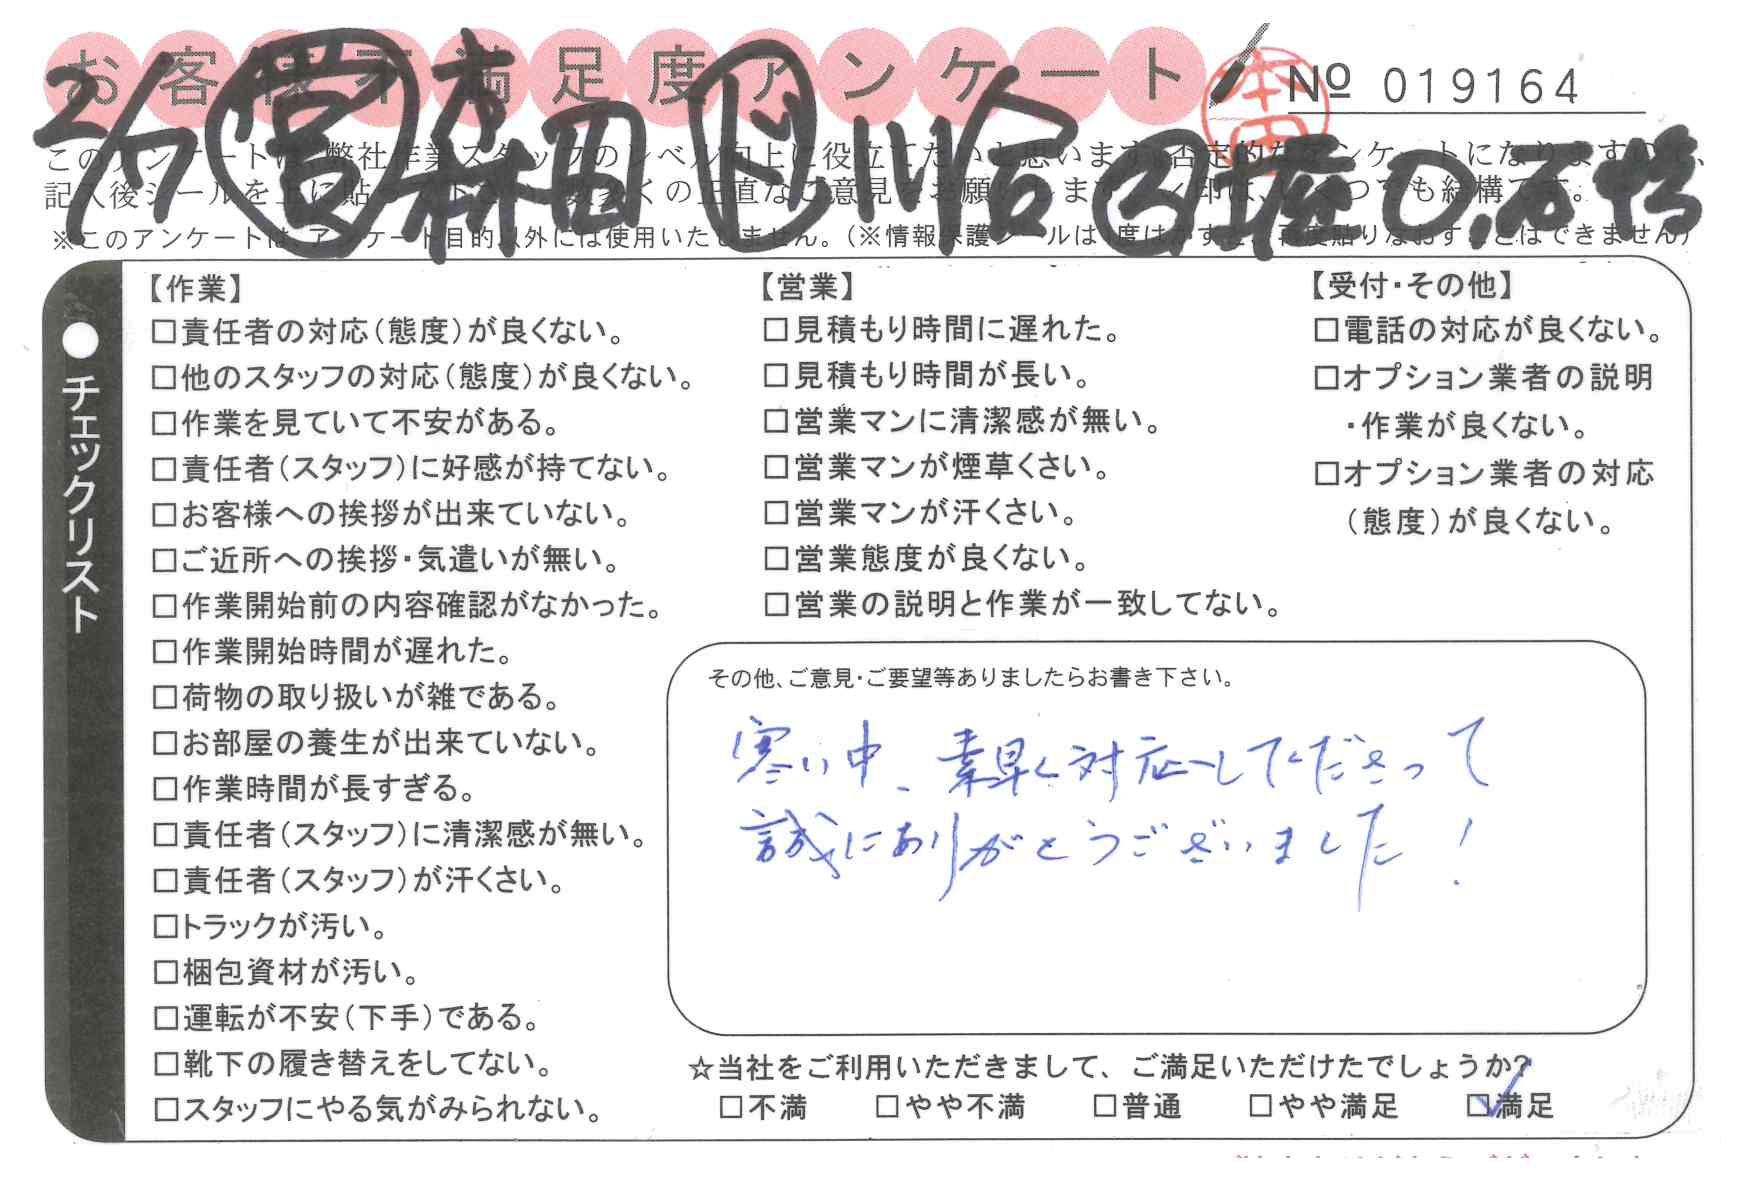 お客様不満足度アンケート
№ 019164
本田
2/7 営 森田 ド 川合
このアンケートは、弊社作業スタッフのレベル向上に役立てたいと思います。否定的なアンケートになりますので、
記入後シールを上に貼って下さい。数多くの正直なご意見をお願いします。レ印は、いくつでも結構です。
※このアンケートは、アンケート目的以外には使用いたしません。(※情報保護シールは1度はがすと、再度貼りなおすことはできません)
●チェックリスト
【作業】
□責任者の対応(態度)が良くない。
□他のスタッフの対応(態度)が良くない。
□作業を見ていて不安がある。
□責任者(スタッフ)に好感が持てない。
□お客様への挨拶が出来ていない。
□ご近所への挨拶・気遣いが無い。
□作業開始前の内容確認がなかった。
□作業開始時間が遅れた。
□荷物の取り扱いが雑である。
□お部屋の養生が出来ていない。
□作業時間が長すぎる。
□責任者(スタッフ)に清潔感が無い。
□責任者(スタッフ)が汗くさい。
□トラックが汚い。
□梱包資材が汚い。
□運転が不安(下手)である。
□靴下の履き替えをしてない。
□スタッフにやる気がみられない。
【営業】
□見積もり時間に遅れた。
□見積もり時間が長い。
□営業マンに清潔感が無い。
□営業マンが煙草くさい。
□営業マンが汗くさい。
□営業態度が良くない。
□営業の説明と作業が一致してない。
【受付・その他】
□電話の対応が良くない。
□オプション業者の説明
・作業が良くない。
□オプション業者の対応
(態度)が良くない。
その他、ご意見・ご要望等ありましたらお書き下さい。
寒い中、素早く対応してくださって
誠にありがとうございました!
☆当社をご利用いただきまして、ご満足いただけたでしょうか?
□不満 □やや不満 □普通 □やや満足 ☑満足